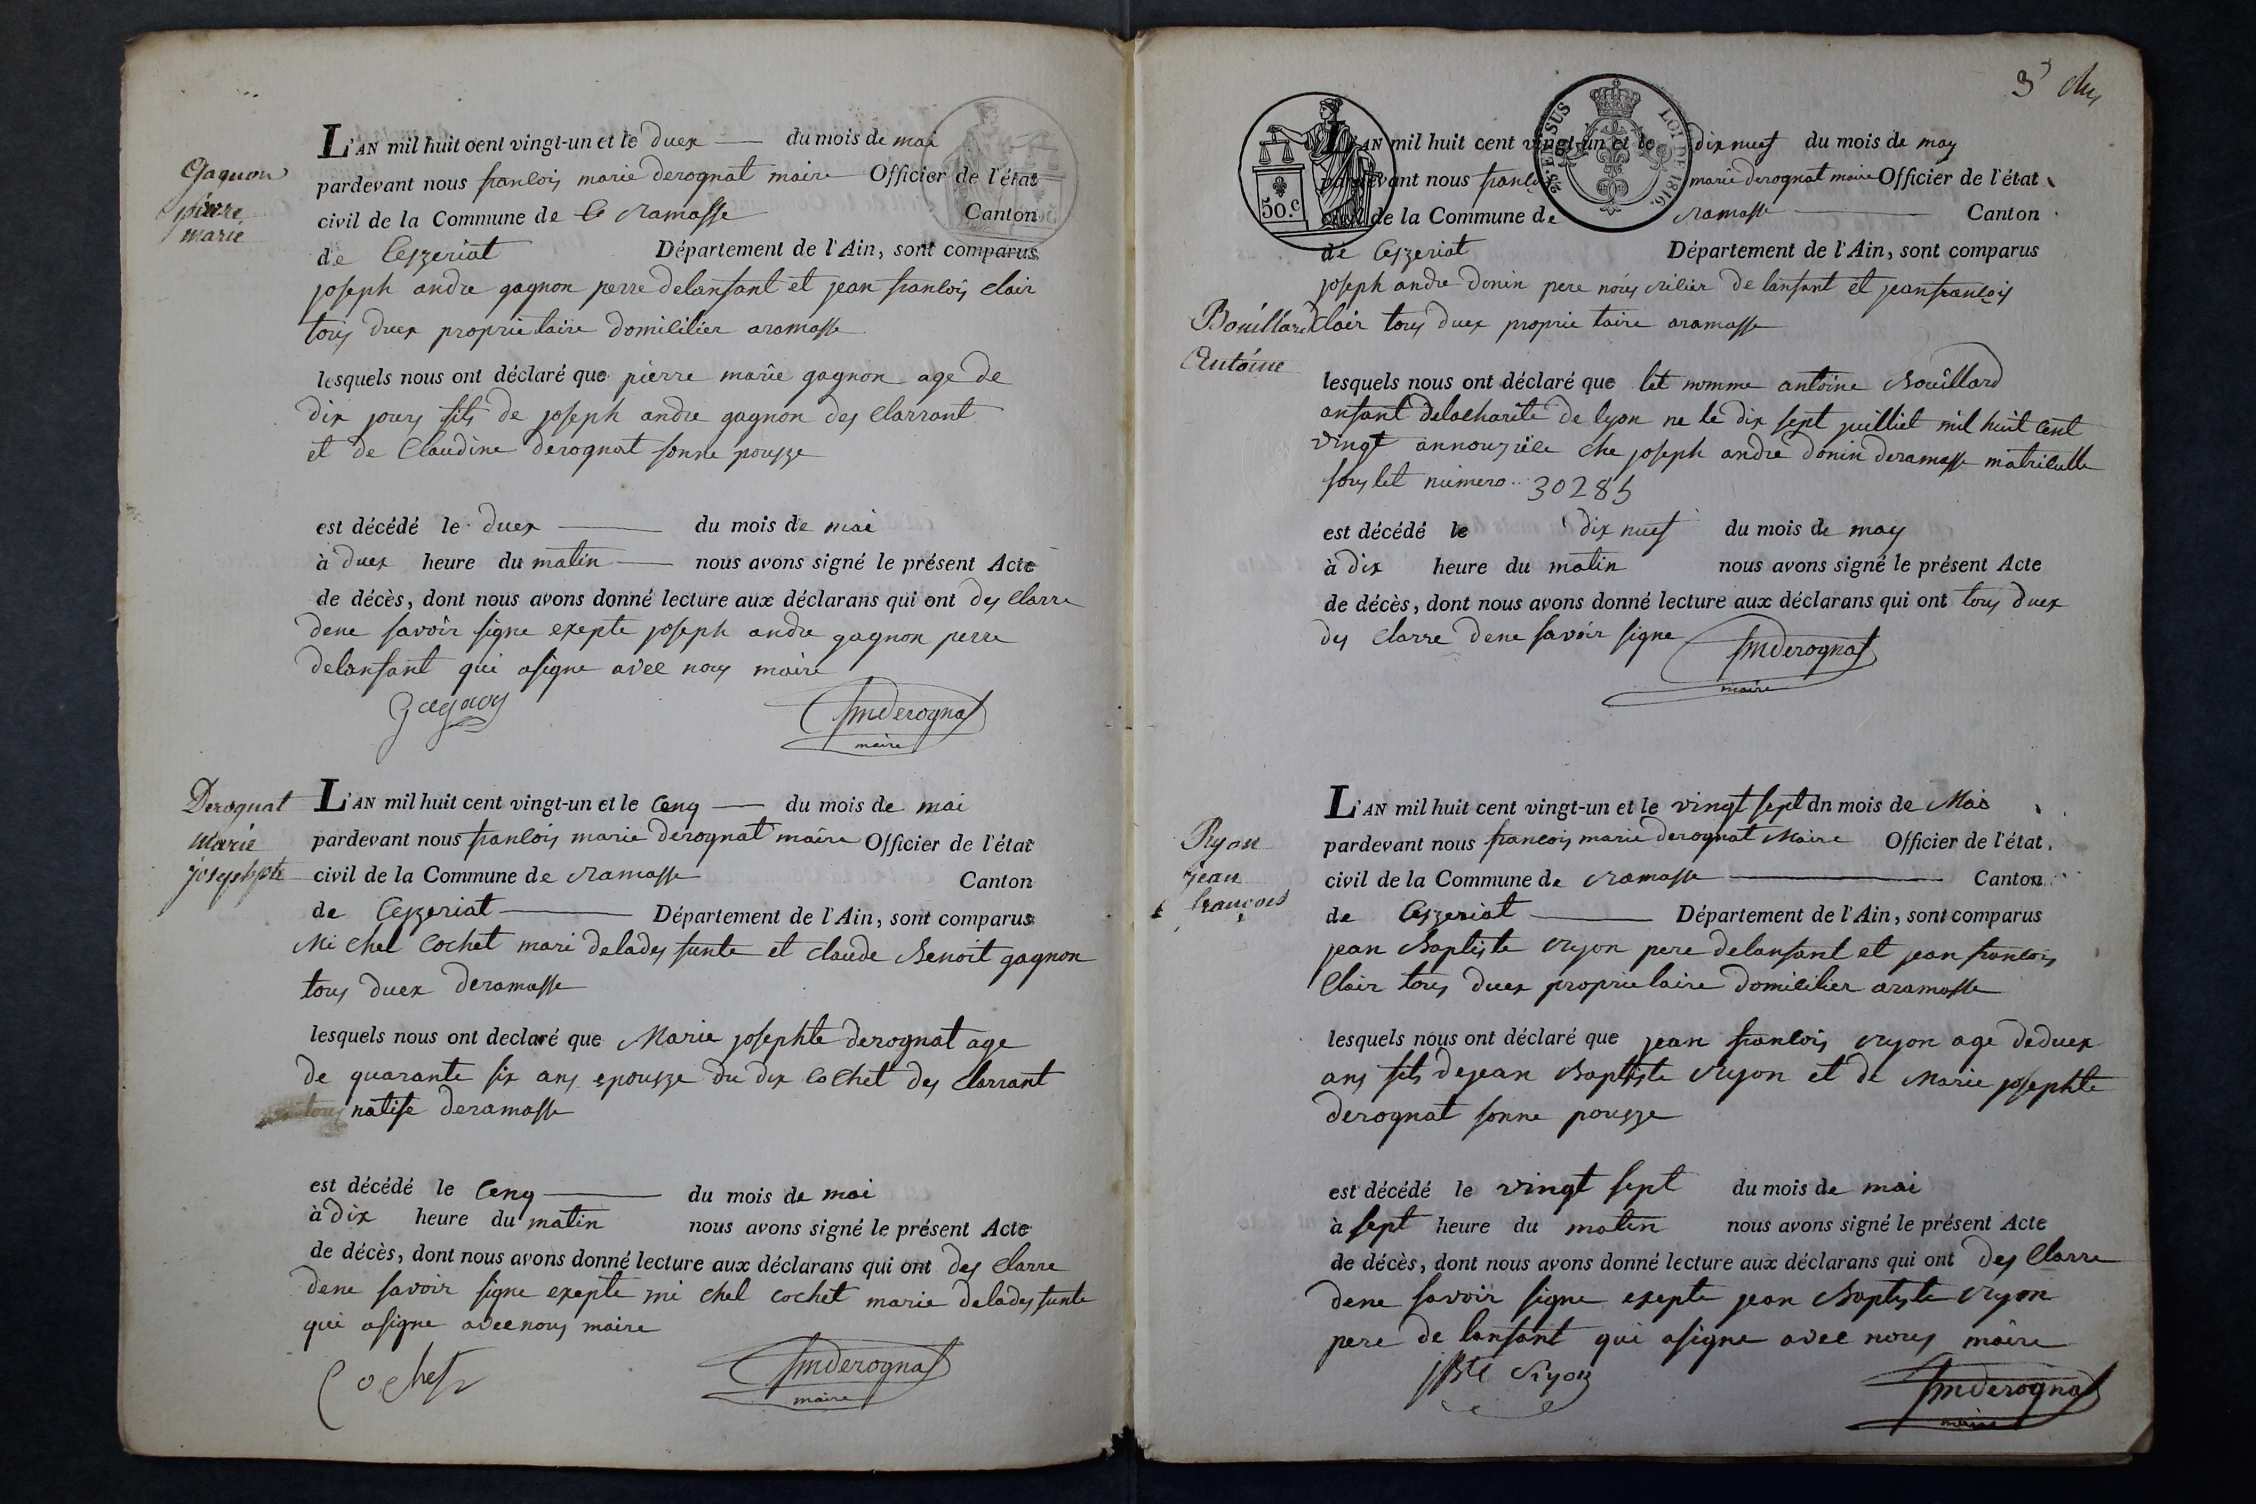 Gagnon
pierre
marie
L'AN mil huit cent vingt-un et le duex du mois de mai
pardevant nous francois marie derognat maire Officier de l'état
civil de la Commune de Ramasse Canton
de Ceyzeriat Département de l'Ain, sont comparus
joseph andre gagnon perre delanfant et jean francois clair
tous duex proprietaire domicilier aramasse
lesquels nous ont déclaré que pierre marie gagnon age de
dix jours fils de joseph andre gagnon des clarrant
et de Claudine derognat sonne pousze
est décédé le duex du mois de mai
à duex heure du matin nous avons signé le présent Acte
de décès, dont nous avons donné lecture aux déclarans qui ont des clarre
dene savoir signe exepte joseph andre gagnon perre
delanfant qui asigne avec nous maire
Gagnon
fmderognat
maire
Derognat
Marie
Josephpte
L'AN mil huit cent vingt-un et le cenq du mois de mai
pardevant nous francois marie derognat maire Officier de l'état
civil de la Commune de Ramasse Canton
de Ceyzeriat Département de l'Ain, sont comparus
Mi chel Cochet mari delades funte et claude Benoit gagnon
tous duex deramasse
lesquels nous ont declaré que Marie josephte derognat age
de quarante six ans epousze du dix Cochet des clarrant
natife deramasse
est décédé le Cenq du mois de mai
à dix heure du matin nous avons signé le présent Acte
de décès, dont nous avons donné lecture aux déclarans qui ont des clarre
dene savoir signe exepte mi chel cochet marie delades funte
qui asigne avec nous maire
Cochet
fmderognat
maire
3
50.c
LOI DE 1816.
L'AN mil huit cent vingt-un et le dix neuf du mois de may
pardevant nous francois marie derognat maire Officier de l'état
civil de la Commune de Ramasse Canton
de Ceyzeriat Département de l'Ain, sont comparus
joseph andre donin pere nourricilier de lanfant et jean francois
Bouillard
clair tous duex proprie taire aramasse
Antoine
lesquels nous ont déclaré que let nomme antoine Bouillard
anfant delacharite de lyon ne le dix sept juilliet mil huit cent
vingt annourice che joseph andre donin deramasse matriculle
sous let numero 30285
est décédé le dix neuf du mois de may
à dix heure du matin nous avons signé le présent Acte
de décès, dont nous avons donné lecture aux déclarans qui ont tous duex
des clarre dene savoir signe
fmderognat
maire
Ryon
jean
françois
L'AN mil huit cent vingt-un et le vingt sept dn mois de Mai
pardevant nous francois marie derognat Maire Officier de l'état
civil de la Commune de Ramasse Canton
de Ceyzeriat Département de l'Ain, sont comparus
jean Baptiste Ryon pere delanfant et jean francois
Clair tous duex proprietaire domicilier aramasse
lesquels nous ont déclaré que jean francois ryon age deduex
ans fils dejean Baptiste Ryon et de Marie josephte
derognat sonne pousze
est décédé le vingt sept du mois de mai
à sept heure du matin nous avons signé le présent Acte
de décès, dont nous avons donné lecture aux déclarans qui ont des Clarre
dene savoir signe exepte jean Baptiste Ryon
pere de lanfant qui asigne avec nous maire
JBte Riyon
fmderognat
maire